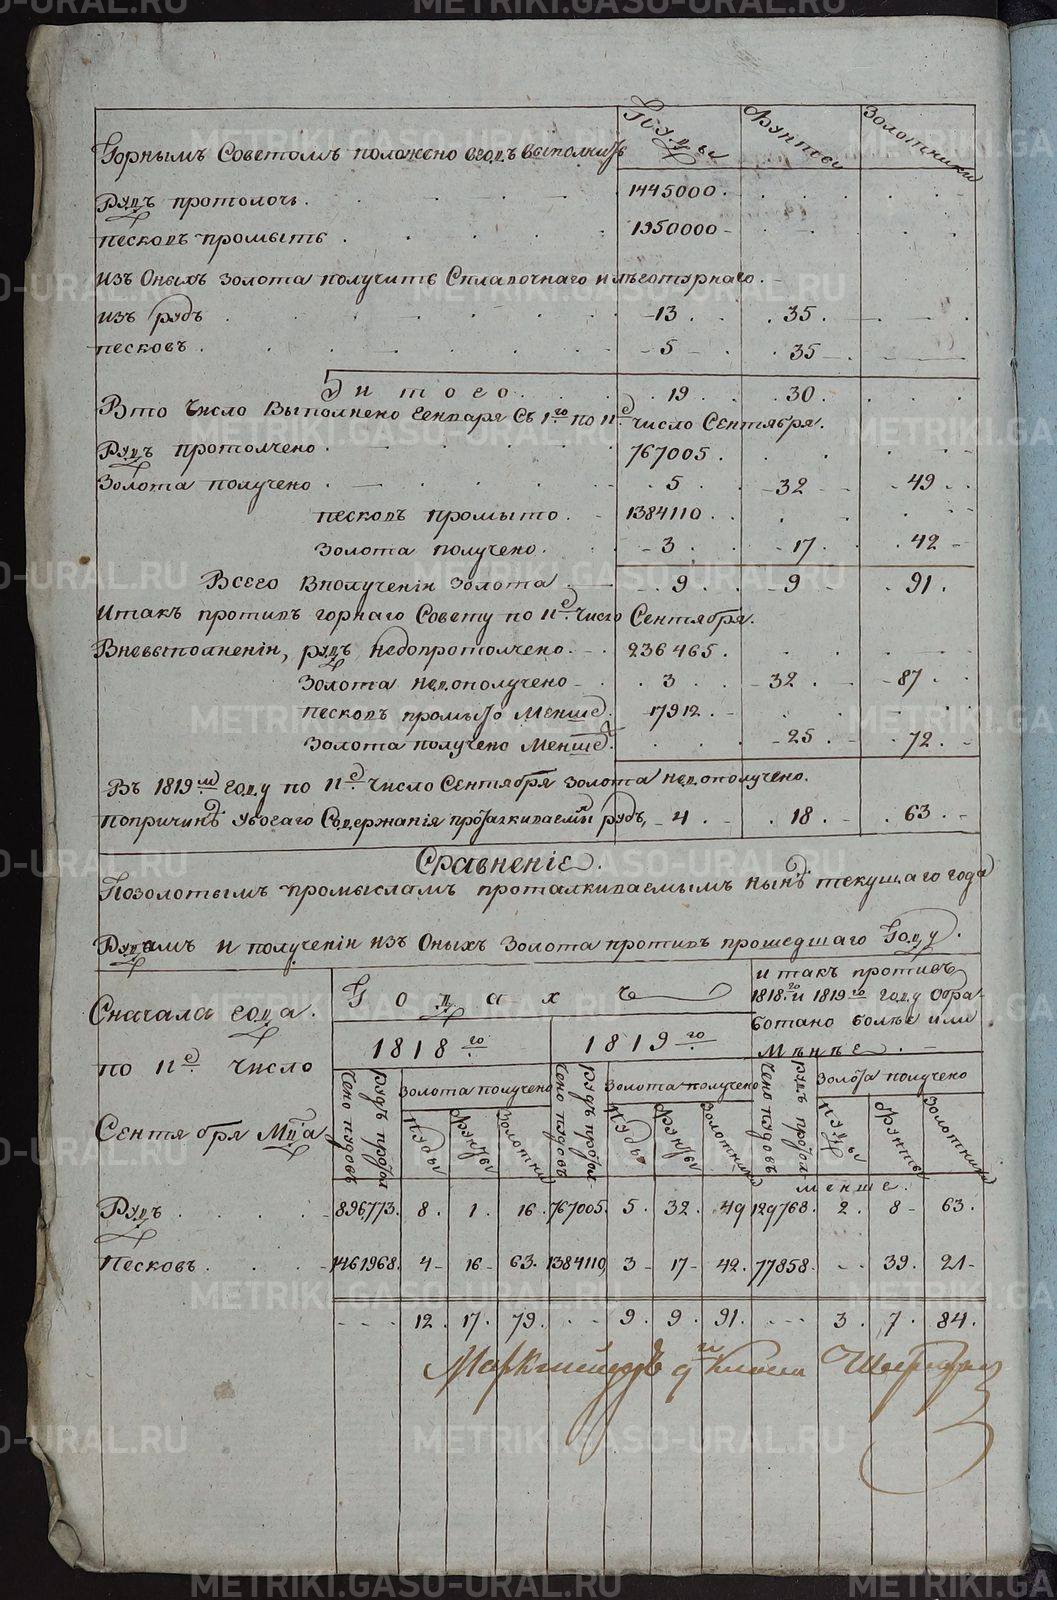 Пуды Фунты Золотники
Горнымъ Советомъ положено вгодъ выполнить
Рудъ протолочь 1445000
песковъ промыть 1350000
изъ Оныхъ золота получить Сплавочнаго и лѣготурнаго
изъ рудъ 13 35
песковъ 5 35
Итого 19 30
Вто число Выполнено Генваря Съ 1го по 11е число Сентября.
Рудъ протолчено 767005
Золота получено 5 32 49
песковъ промыто 1384110
золота получено 3 17 42
Всего Вполученіи золота 9 9 91
Итакъ противъ горнаго Совету по 11е число Сентября.
Вневыполненіи, рудъ недопротолчено 236465
Золота недополучено 3 32 87
песковъ промыто Менше 17912
Золота получено Менше 25 72
Въ 1819м году по 11е число Сентября золота недополучено.
попричинѣ убогаго Содержанія протолкиваемыи рудъ, 4 18 63
Сравненіе.
Позолотымъ промысламъ проталкиваемымъ нынѣ текущаго года
Рудамъ и полученіи изъ Оныхъ золота противъ прошедшаго Году.
Сначала года.
по 11е число
Сентября Мца
Годахъ
1818го 1819го
и такъ противъ
1818го и 1819го году Обра-
ботано болѣе или
Мѣнѣе.
рудъ протол
чено пудовъ
Золота получено
Пуды Фунты Золотни
рудъ протол
чено пудовъ
Золота получено
Пуды Фунты Золотники
рудъ протол
чено пудовъ
Золота получено
Пуды Фунты Золотники
менше.
Рудъ 896773. 8. 1. 16. 767005. 5. 32. 49 129768. 2. 8 63.
Песковъ 1461968. 4 16 63. 1384110 3 17 42. 77858. 39. 21
12. 17. 79. 9. 9. 91. 3. 7. 84.
METRIKI.GASO-URAL.RU